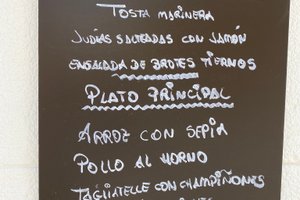 TOSTA MARINERA
JUDÍAS SALTEADAS CON JAMÓN
ENSALADA DE BROTES TIERNOS
PLATO PRINCIPAL
ARROZ CON SEPIA
POLLO AL HORNO
TAGLIATELLE CON CHAMPIÑONES